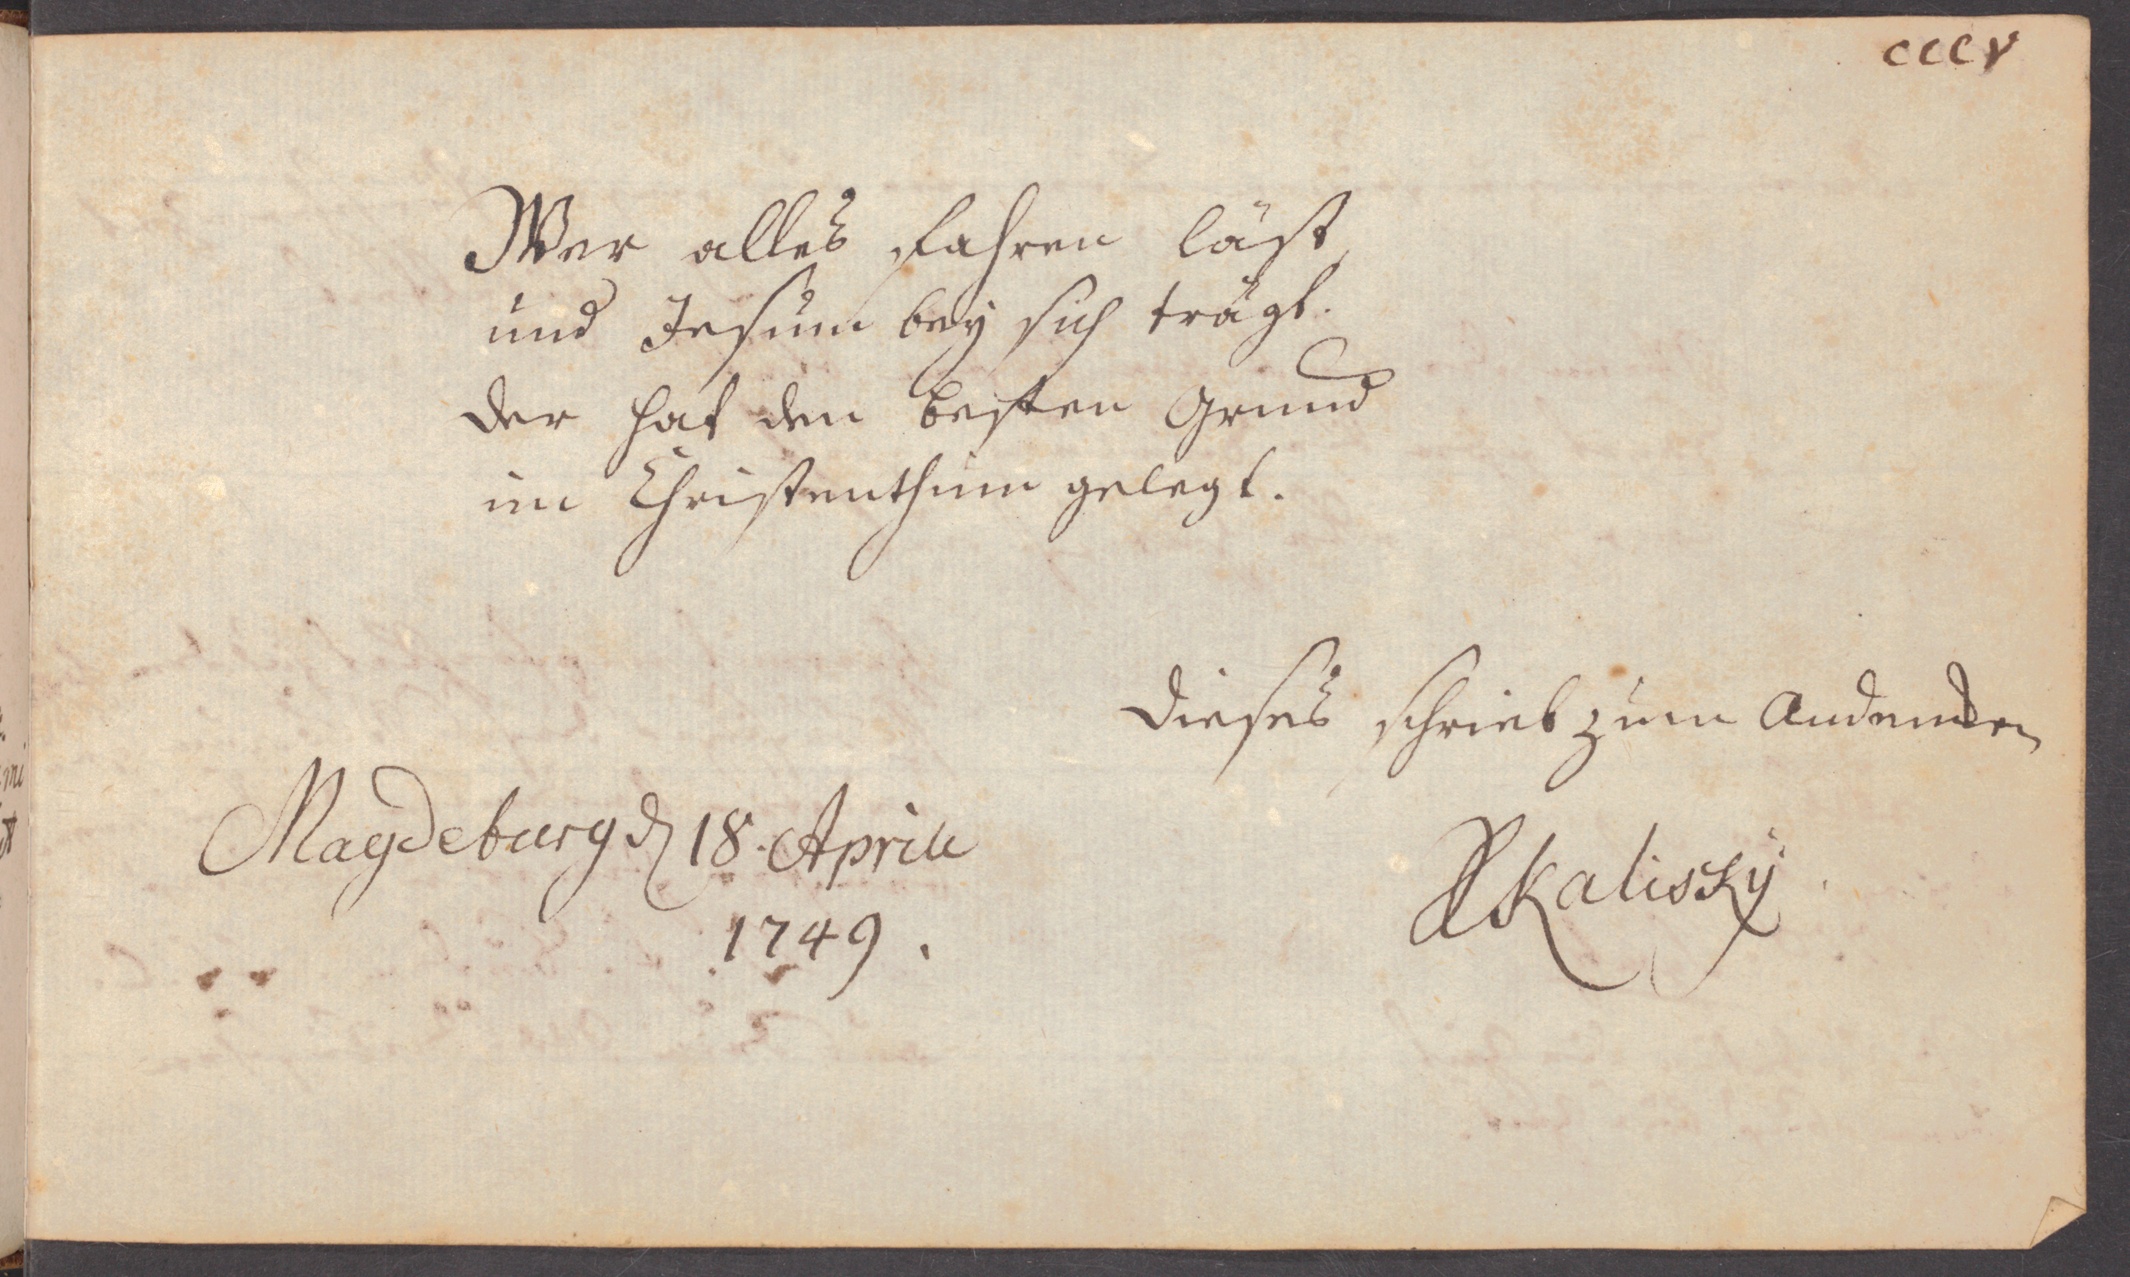 CCCV
Wer alles fahren läst,
und Jesum beÿ sich trägt.
der hat den besten Grund
im Christenthum gelegt.
Dieses schrieb zum Andencken
Magdeburg d 18. Aprill
1749.
Kalisky